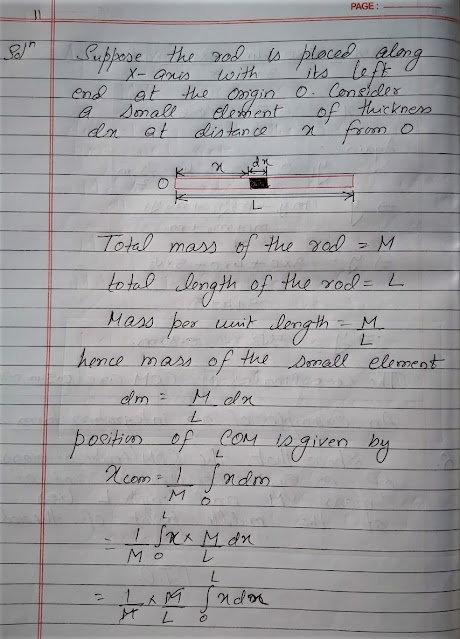 PAGE :
11
Solⁿ Suppose the rod is placed along
x-axis with its left
end at the origin O. Consider
a small element of thickness
dx at distance x from O
x dx
O
L
Total mass of the rod = M
total length of the rod = L
Mass per unit length = M/L
hence mass of the small element
dm = M/L dx
position of COM is given by
xcom = 1/M ∫₀ᴸ x dm
= 1/M ∫₀ᴸ x × M/L dx
= 1/M × M/L ∫₀ᴸ x dx